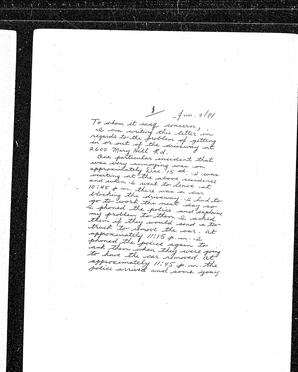 1/
Jan. 9/91
To whom it may concern!
I am writing this letter in
regards to the problem of getting
in or out of the driveway at
2600 Mary Hill Rd.
One particular incident that
was very annoying was on
approximately Dec 15th. I was
visiting at the above residence
and when I went to leave at
10:45 p.m. there was a car
blocking the driveway. I had to
go to work the next day so
I phoned the police and explained
my problem to them. I asked
them if they would send a tow
truck to move the car. At
approximately 11:15 p.m. I
phoned the police again to
ask them when they were going
to have the car removed. At
approximately 11:45 p.m. the
police arrived and some young